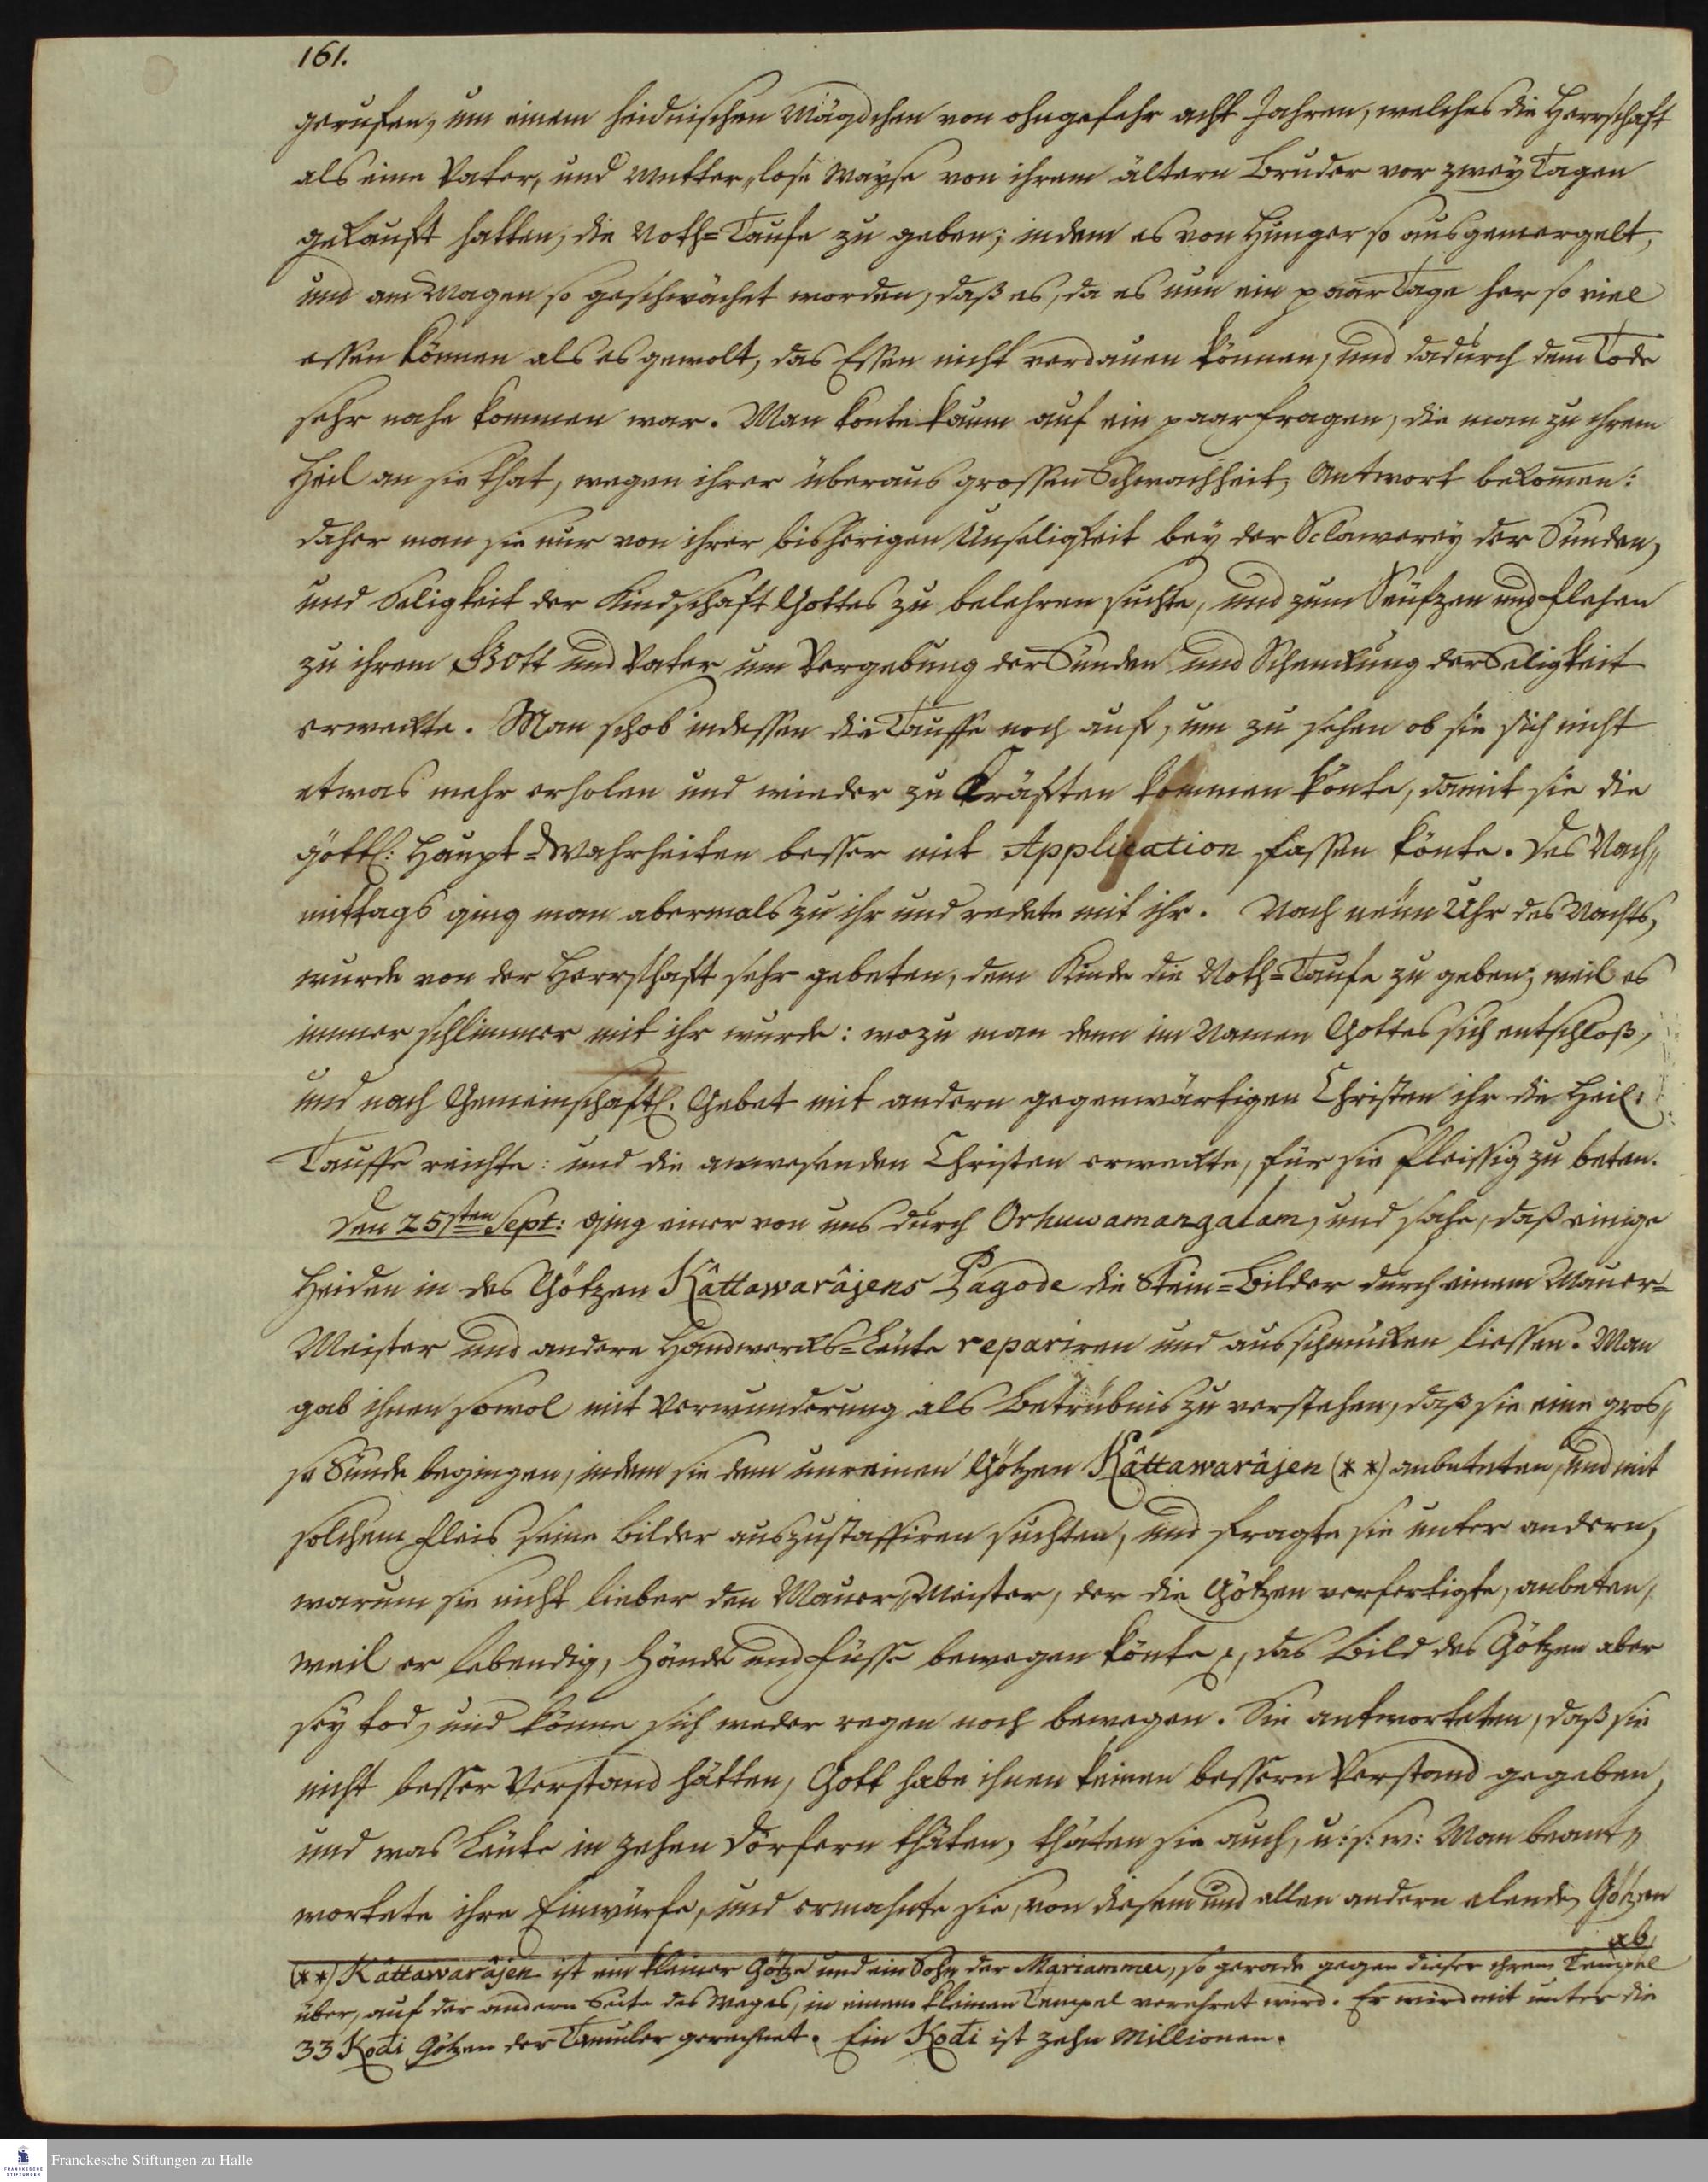 161.
gerufen, um einem heidnischen Mägdchen von ohngefehr acht Jahren, welches die Herrschaft
als eine Vater, und Mutter,,lose Wayse von ihrem ältern Bruder vor zwey Tagen
gekauft hatten, die Noth=Taufe zu geben; indem es von Hunger so ausgemergelt,
und am Magen so geschwächet worden, daß es, da es nun ein paar Tage her so viel
essen können als es gewolt, das Essen nicht verdauen können, und dadurch dem Tode
sehr nahe kommen war. Man konte kaum auf ein paar Fragen, die man zu ihrem
Heil an sie that, wegen ihrer überaus grossen Schwachheit, Antwort bekom̅en:
daher man sie nur von ihrer bisherigen Unseligkeit bey der Sclaverey der Sünden,
und Seligkeit der Kindschaft Gottes zu belehren suchte, und zum Seufzen und Flehen
zu ihrem Gott und Vater um Vergebung der Sünden und Schenkung der Seligkeit
erweckte. Man schob indessen die Tauffe noch auf, um zu sehen ob sie sich nicht
etwas mehr erholen und wieder zu Kräften kommen könte, damit sie die
göttl: Haupt=Wahrheiten besser mit Application fassen könte. Des Nach,,
mittags ging man abermals zu ihr und redete mit ihr. Nach neun Uhr des Nachts,
wurde von der Herrschaft sehr gebeten, dem Kinde die Noth=Taufe zu geben, weil es
immer schlimmer mit ihr wurde: wozu man denn im Namen Gottes sich entschloß,
und nach Gemeinschaftl. Gebet mit andern gegenwärtigen Christen ihr die Heil:
Tauffe reichte: und die anwesenden Christen erweckte, für sie fleissig zu beten.
Den 25sten Sept: ging einer von uns durch Orhuwamangalam, und sahe, daß einige
Heiden in des Götzen Kâttawarâjens Pagode die Stein=Bilder durch einem Mauer=
Meister und andere Handwercks=Leute repariren und ausschmücken liessen. Man
gab ihnen sowol mit Verwunderung als Betrübnis zu verstehen, daß sie eine gros,,
se Sünde begingen, indem sie dem unreinen Götzen Kâttawarâjen (**) anbeteten, und mit
solchem Fleis seine Bilder auszustaffiren suchten, und fragte sie unter andern,
warum sie nicht lieber den Mauer,,Meister, der die Götzen verfertigte, anbeten,
weil er lebendig, Hände und Füsse bewegen könte, das Bild des Götzen aber
sey tod, und könne sich weder regen noch bewegen. Sie antworteten, daß sie
nicht besser Verstand hätten, Gott habe ihnen keinen bessern Verstand gegeben,
und was Leute in zehen Dörfern thäten, thäten sie auch, u: s: w: Man beant,,
wortete ihre Einwürfe, und ermahnte sie, von diesem und allen andern elenden Götzen
ab
(**) Kâttawarâjen ist ein kleiner Götze und ein Sohn der Mariammei, so gerade gegen dieser ihrem Tempel
über, auf der andern Seite des Weges, in einem kleinen Tempel verehret wird. Er wird mit unter die
33 Kodi Götzen der Tamuler gerechnet. Ein Kodi ist zehn Millionen.
FRANCKESCHE STIFTUNGEN
Franckesche Stiftungen zu Halle